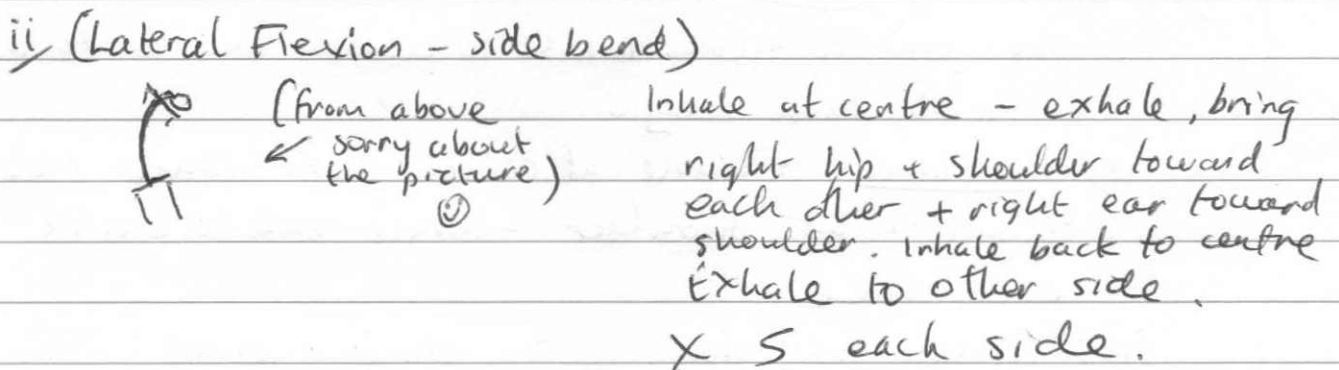 ii, (Lateral Flexion - side bend)
(from above
sorry about
the picture)
Inhale at centre - exhale, bring
right hip + shoulder toward
each other + right ear toward
shoulder. Inhale back to centre
Exhale to other side.
x 5 each side.